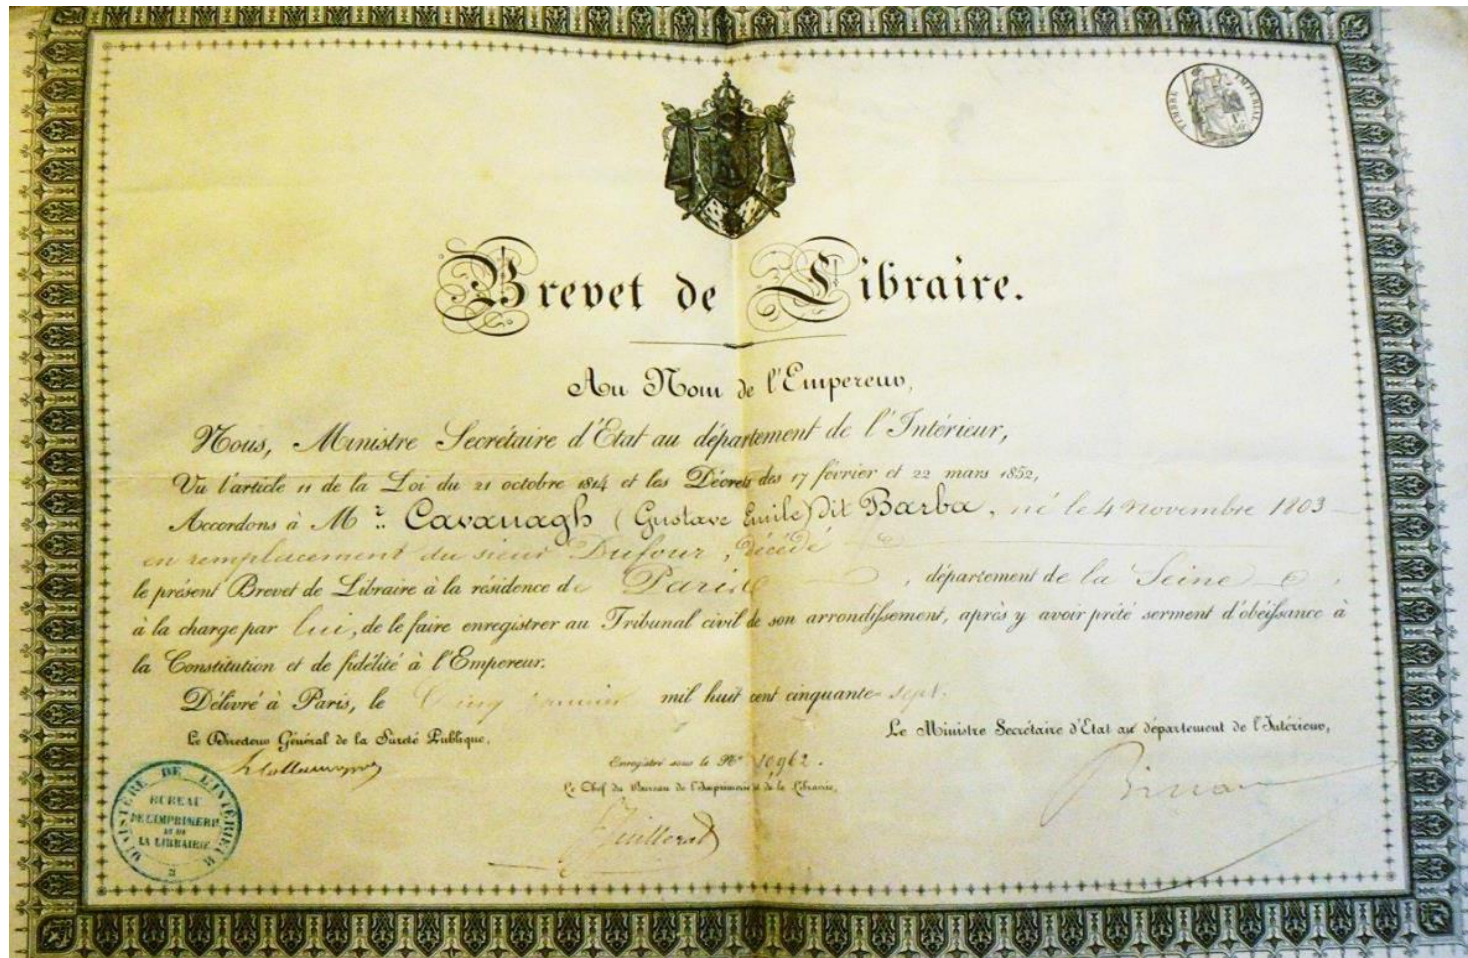 TIMBRE IMPERIAL
Brevet de Libraire.
Au Nom de l'Empereur,
Nous, Ministre Secrétaire d'Etat au département de l'Intérieur,
Vu l'article 11 de la Loi du 21 octobre 1814 et les Décrets des 17 février et 22 mars 1852,
Accordons à Mr. Cavanagh (Gustave Emile) Dit Barba, né le 4 Novembre 1803
en remplacement du sieur Dufour, décédé
le présent Brevet de Libraire à la résidence de Paris, département de la Seine,
à la charge par lui, de le faire enregistrer au Tribunal civil de son arrondissement, après y avoir prêté serment d'obéissance à
la Constitution et de fidélité à l'Empereur.
Délivré à Paris, le Cinq Janvier mil huit cent cinquante-sept.
Le Directeur Général de la Sureté Publique,
Le Ministre Secrétaire d'Etat au département de l'Intérieur,
Enregistré sous le No 10962.
Le Chef du Bureau de l'Imprimerie et de la Librairie,
Juillerat
Billault
MINISTÈRE DE L'INTÉRIEUR
BUREAU
DE L'IMPRIMERIE
ET DE
LA LIBRAIRIE